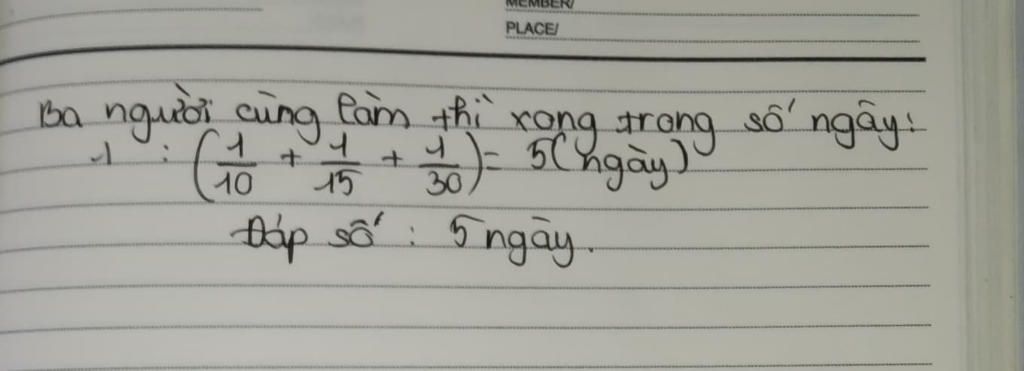 MEMBER/
PLACE/
Ba người cùng làm thì xong trong số ngày:
1 : (1/10 + 1/15 + 1/30) = 5 (ngày)
Đáp số : 5 ngày.